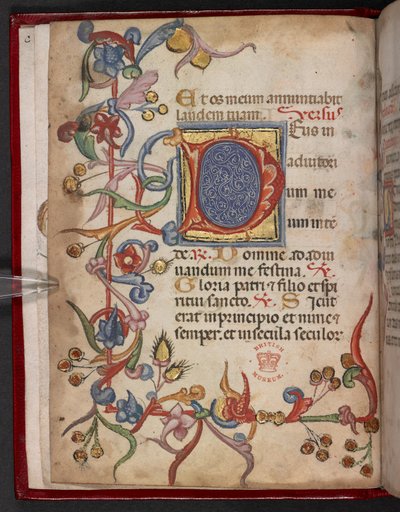 Et os meum annuntiabit
laudem tuam. Versus
Deus in
adiutori
um me
um inte
de. R. Domine ad adiu
uandum me festina. V.
Gloria patri & filio et spi
ritui sancto. R. Sicut
erat in principio et nunc &
semper. et in secula seculor
BRITISH
MUSEUM